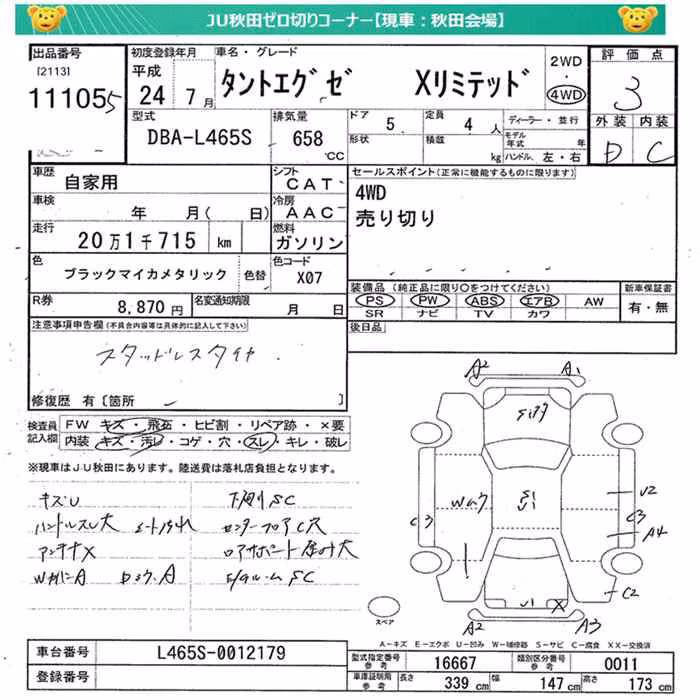 JU秋田ゼロ切りコーナー【現車：秋田会場】
出品番号
[2113]
111055
初度登録年月
平成
24 年 7 月
車名・グレード
タントエグゼ Xリミテッド
2WD
・
4WD
評価点
3
外装 内装
D C
型式
DBA-L465S
排気量
658
CC
ドア 5
形状
定員 4 人
積載 kg
ディーラー・並行
モデル年式 年
ハンドル、左・右
車歴
自家用
シフト
CAT
車検
年 月( 日)
冷房
AAC
走行
20万1千715 km
燃料
ガソリン
色
ブラックマイカメタリック
色替
色コード
X07
R券
8,870円
名変通知期限
月 日
セールスポイント(正常に機能するものに限ります)
4WD
売り切り
装備品(純正品に限り○をつけてください)
PS PW ABS エアB AW
SR ナビ TV カワ
新車保証書
有・無
後日品
注意事項申告欄(不具合内容等は具体的に記入して下さい)
スタッドレスタイヤ
修復歴 有〔箇所 〕
検査員記入欄
FW キズ・飛石・ヒビ割・リペア跡・×要
内装 キズ・汚レ・コゲ・穴・スレ・キレ・破レ
※現車はJU秋田にあります。陸送費は落札店負担となります。
キズU
下廻りSC
ハンドルスレ大 シート汚れ
センターフロアC穴
アンテナX
ロアサポート
A2 A1
Wムラ
U2
C3 C3
A4
C2
U1 X
A2 A3
スペア
A－キズ E－エクボ U－凹み W－補修跡 S－サビ C－腐食 XX－交換済
車台番号
L465S-0012179
登録番号
型式指定番号 参考 16667
類別区分番号 参考 0011
車庫証明用 参考 長さ 339 cm 幅 147 cm 高さ 173 cm